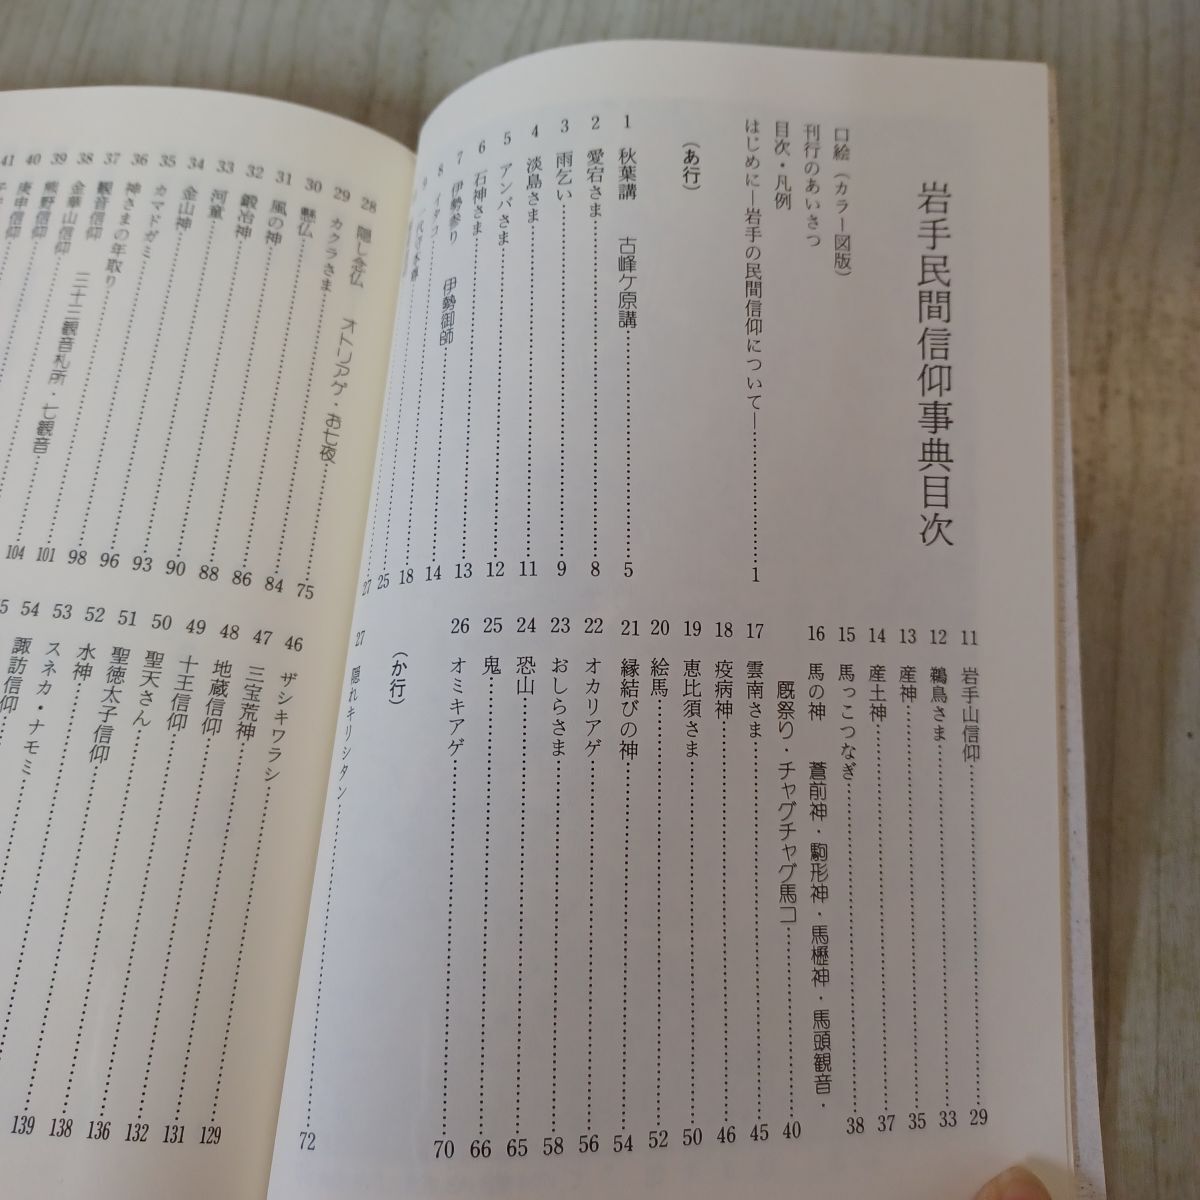 岩手民間信仰事典目次
口絵（カラー図版）
刊行のあいさつ
目次・凡例
はじめに―岩手の民間信仰について―……1
（あ行）
1 秋葉講 古峰ケ原講……5
2 愛宕さま……8
3 雨乞い……9
4 淡島さま……11
5 アンバさま……12
6 石神さま……13
7 伊勢参り 伊勢御師……14
8 イタコ……18
9
11 岩手山信仰……29
12 鵜鳥さま……33
13 産神……35
14 産土神……37
15 馬っこつなぎ……38
16 馬の神 蒼前神・駒形神・馬櫪神・馬頭観音・
厩祭り・チャグチャグ馬コ……40
17 雲南さま……45
18 疫病神……46
19 恵比須さま……50
20 絵馬……52
21 縁結びの神……54
22 オカリアゲ……56
23 おしらさま……58
24 恐山……65
25 鬼……66
26 オミキアゲ……70
（か行）
27 隠れキリシタン……72
28 隠し念仏 オトリアゲ・お七夜……75
29 カクラさま……84
30 懸仏……86
31 風の神……88
32 鍛冶神……90
33 河童……93
34 金山神……96
35 カマドガミ……98
36 神さまの年取り……101
37 観音信仰 三十三観音札所・七観音……104
38 金華山信仰
39 熊野信仰
40 庚申信仰
41
46 ザシキワラシ……129
47 三宝荒神……131
48 地蔵信仰……132
49 十王信仰……136
50 聖天さん……138
51 聖徳太子信仰……139
52 水神
53 スネカ・ナモミ
54 諏訪信仰